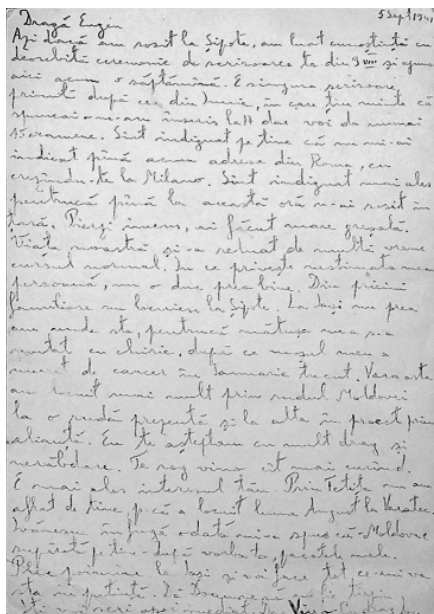 5 Sept 1941
Dragă Eugen
Azi dacă am sosit la Sipote, am luat cunoștință cu
deosebită ceremonie de scrisoarea ta din 3 VIII și ajuns
aici acum o săptămînă. E singura scrisoare
primită după cea din Iunie, în care țin minte că
spuneai
examene. Sînt indignat pe tine că nu mi-ai
indicat pînă acum adresa din Roma, eu
crezîndu-te la Milano. Sînt indignat mai ales
pentrucă pînă la această oră n-ai sosit în
țară. Pierzi imens, ai făcut mare greșală.
Viața noastră și-a reluat de multă vreme
cursul normal. In ce privește nestimata mea
persoană, nu o duc prea bine. Din pricini
familiare nu locuiesc la Sipote. La Iași nu prea
am unde sta, pentrucă mătușa mea s-a
mutat cu chirie, după ce moșul meu a
murit de cancer în Ianuarie trecut. Vara asta
am locuit mai mult prin sudul Moldovei
la o rudă prezentă și la alta în proect prin
alianță. Eu te așteptam cu mult drag și
nerăbdare. Te rog vino cît mai curînd.
E mai ales interesul tău. Prin Tetite nu am
aflat de tine, p-că a locuit luna August la Varatec.
Ivănescu în fugă odată mi-a spus că
după vorba ta, prietele mele.
la Iași și voi face tot ce-mi va
sta în putință.
imediat.